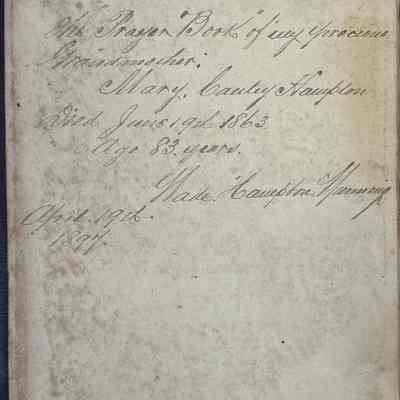 The Prayer "Book" of my precious
Grandmother.
Mary. Cantey Hampton
Died June 19th 1863
Age 83 years.
Wade. Hampton Manning
April. 19th.
1897